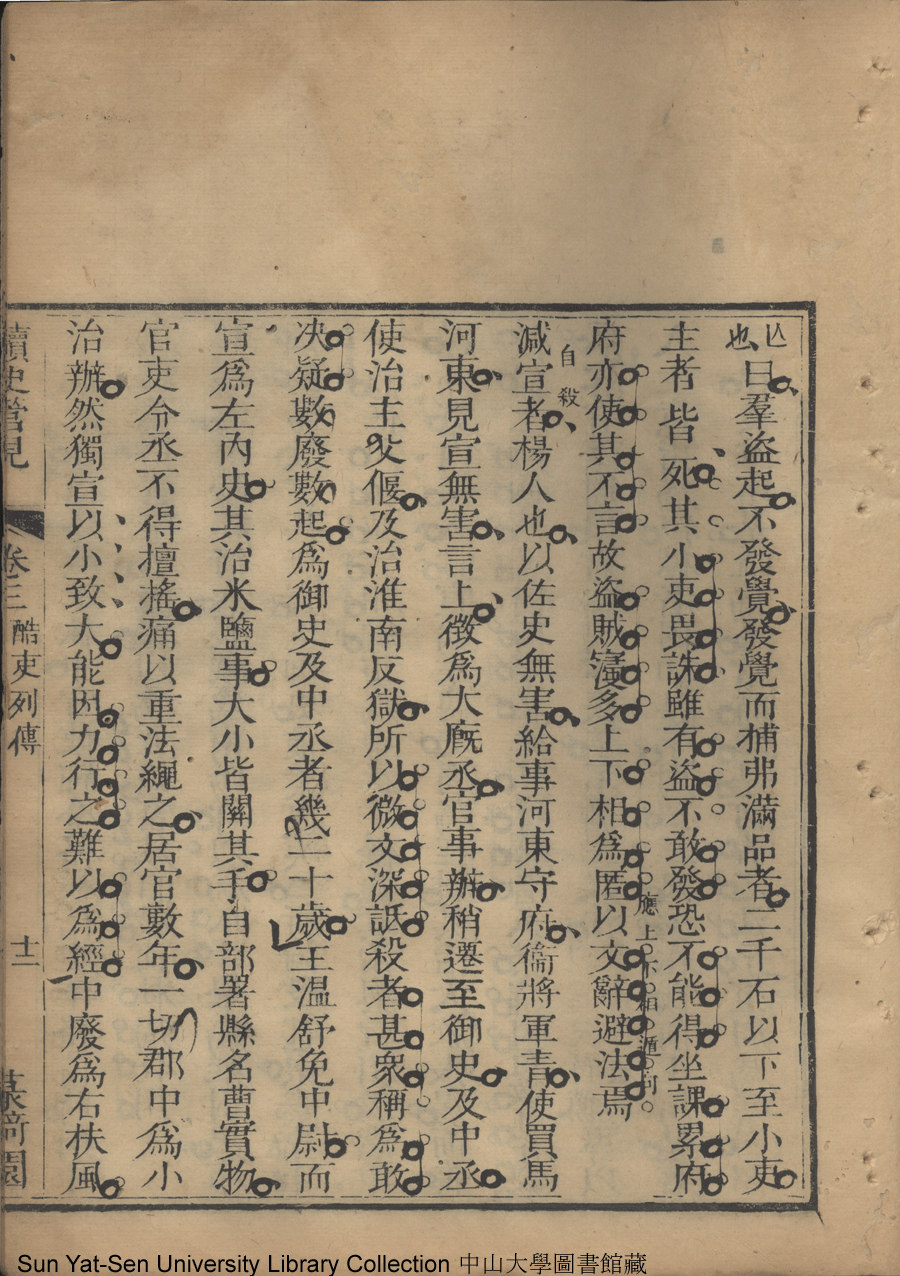 亾也曰羣盜起不發覺發覺而捕弗滿品者二千石以下至小吏
主者皆死其小吏畏誅雖有盜不敢發恐不能得坐課累府
府亦使其不言故盜賊寖多上下相爲匿以文辭避法焉
應上下相遁句
自殺
減宣者楊人也以佐史無害給事河東守府衞將軍青使買馬
河東見宣無害言上徵爲大廐丞官事辦稍遷至御史及中丞
使治主父偃及治淮南反獄所以微文深詆殺者甚衆稱爲敢
决疑數廢數起爲御史及中丞者幾二十歲王溫舒免中尉而
宣爲左內史其治米鹽事大小皆關其手自部署縣名曹實物
官吏令丞不得擅搖痛以重法繩之居官數年一切郡中爲小
治辦然獨宣以小致大能因力行之難以爲經中廢爲右扶風
讀史管見
卷三 酷吏列傳
十二
Sun Yat-Sen University Library Collection 中山大學圖書館藏